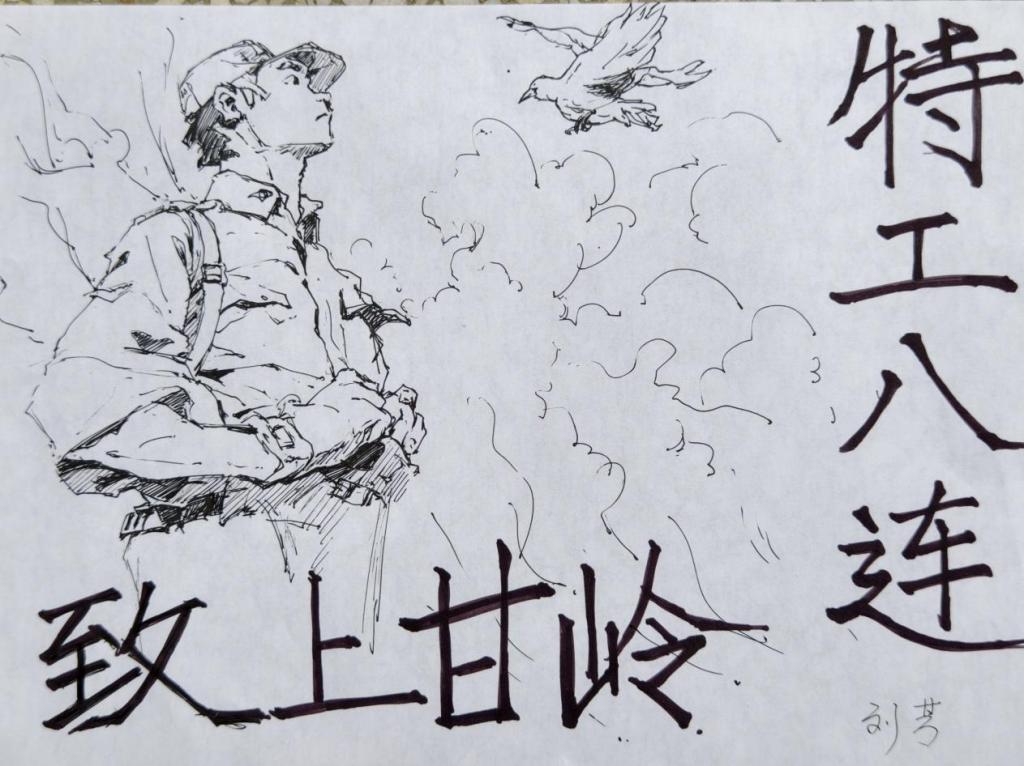 特工八连
致上甘岭
刘芳